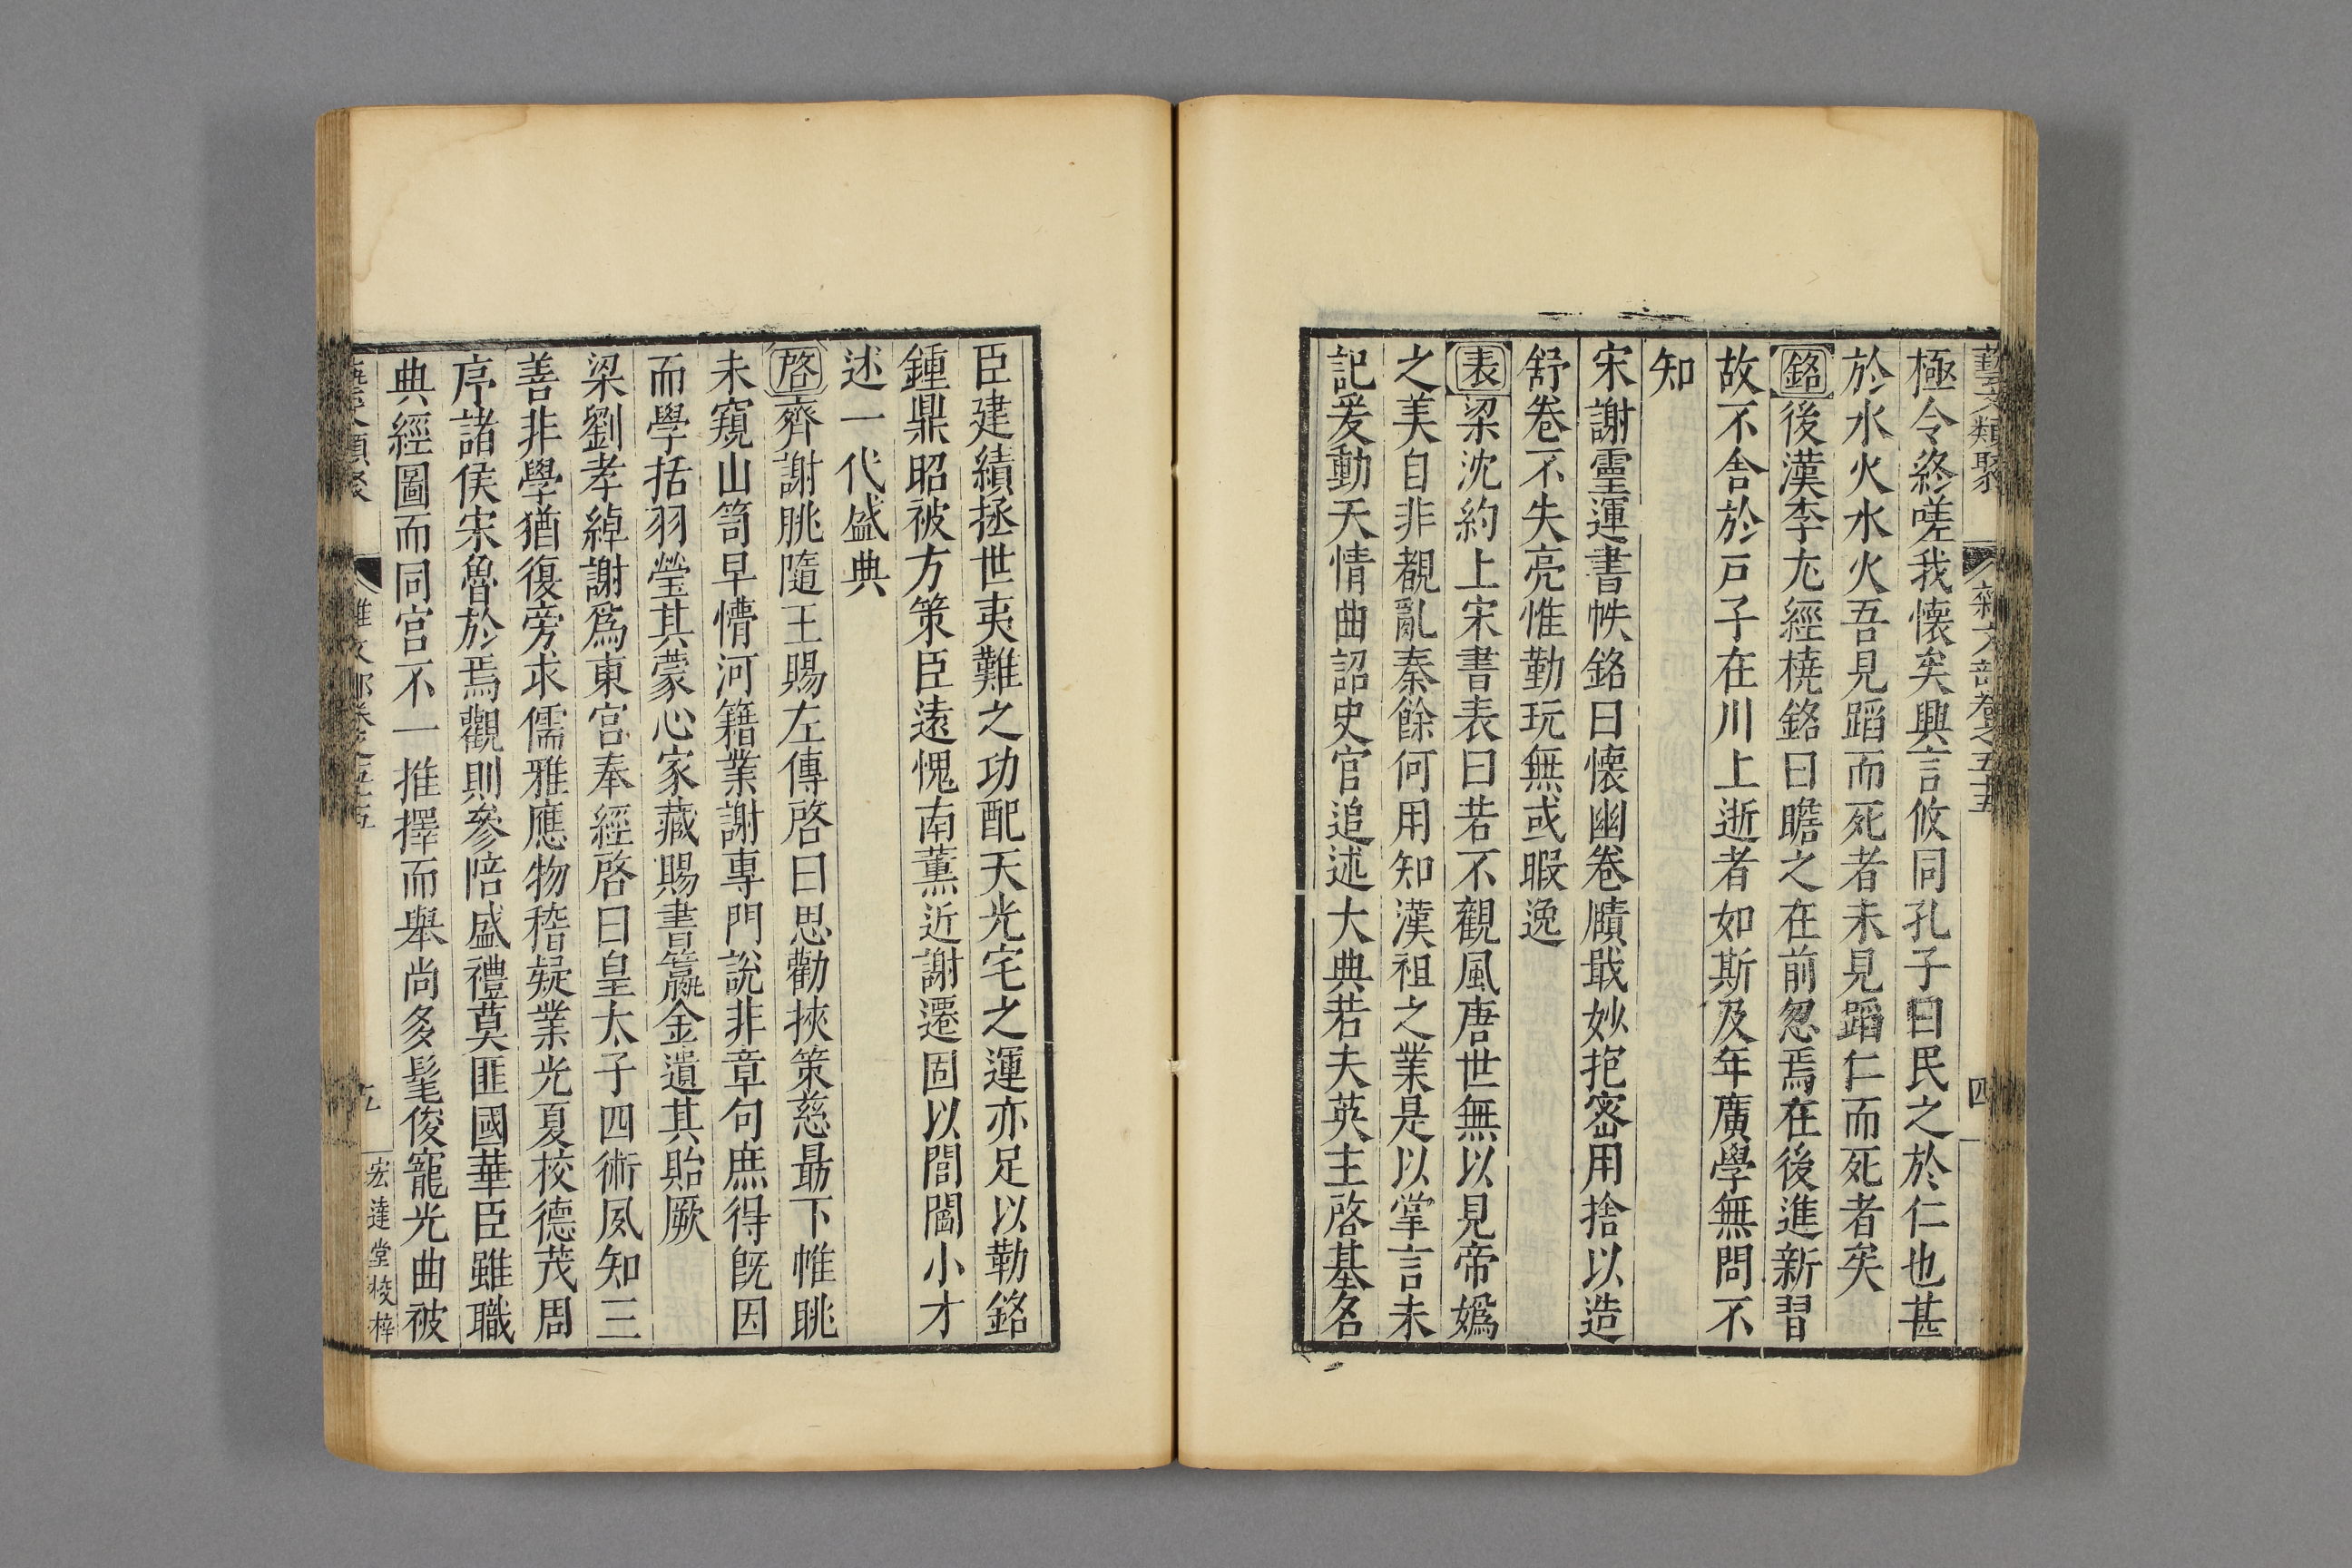 藝文類聚 雜文部卷之五十五 四
極令終嗟我懷矣興言攸同孔子曰民之於仁也甚
於水火水火吾見蹈而死者未見蹈仁而死者矣
銘後漢李尤經橈銘曰瞻之在前忽焉在後進新習
故不舍於戸子在川上逝者如斯及年廣學無問不
知
宋謝靈運書帙銘曰懷幽卷賾戢妙抱密用捨以造
舒卷不失亮惟勤玩無或暇逸
表梁沈約上宋書表曰若不觀風唐世無以見帝嬀
之美自非覩亂秦餘何用知漢祖之業是以掌言未
記爰動天情曲詔史官追述大典若夫英主啓基名
臣建績拯世夷難之功配天光宅之運亦足以勒銘
鍾鼎昭被方策臣遠愧南薰近謝遷固以閭閻小才
述一代盛典
啓齊謝朓隨王賜左傳啓曰思勸挾策慈勗下帷眺
未窺山笥早懵河籍業謝專門說非章句庶得旣因
而學括羽瑩其蒙心家藏賜書籯金遺其貽厥
梁劉孝綽謝爲東宮奉經啓曰皇太子四術夙知三
善非學猶復旁求儒雅應物稽疑業光夏校德茂周
序諸侯宋魯於焉觀則參陪盛禮莫匪國華臣雖職
典經圖而同官不一推擇而舉尚多髦俊寵光曲被
類聚 雜文部卷之五十五 五 宏達堂校梓